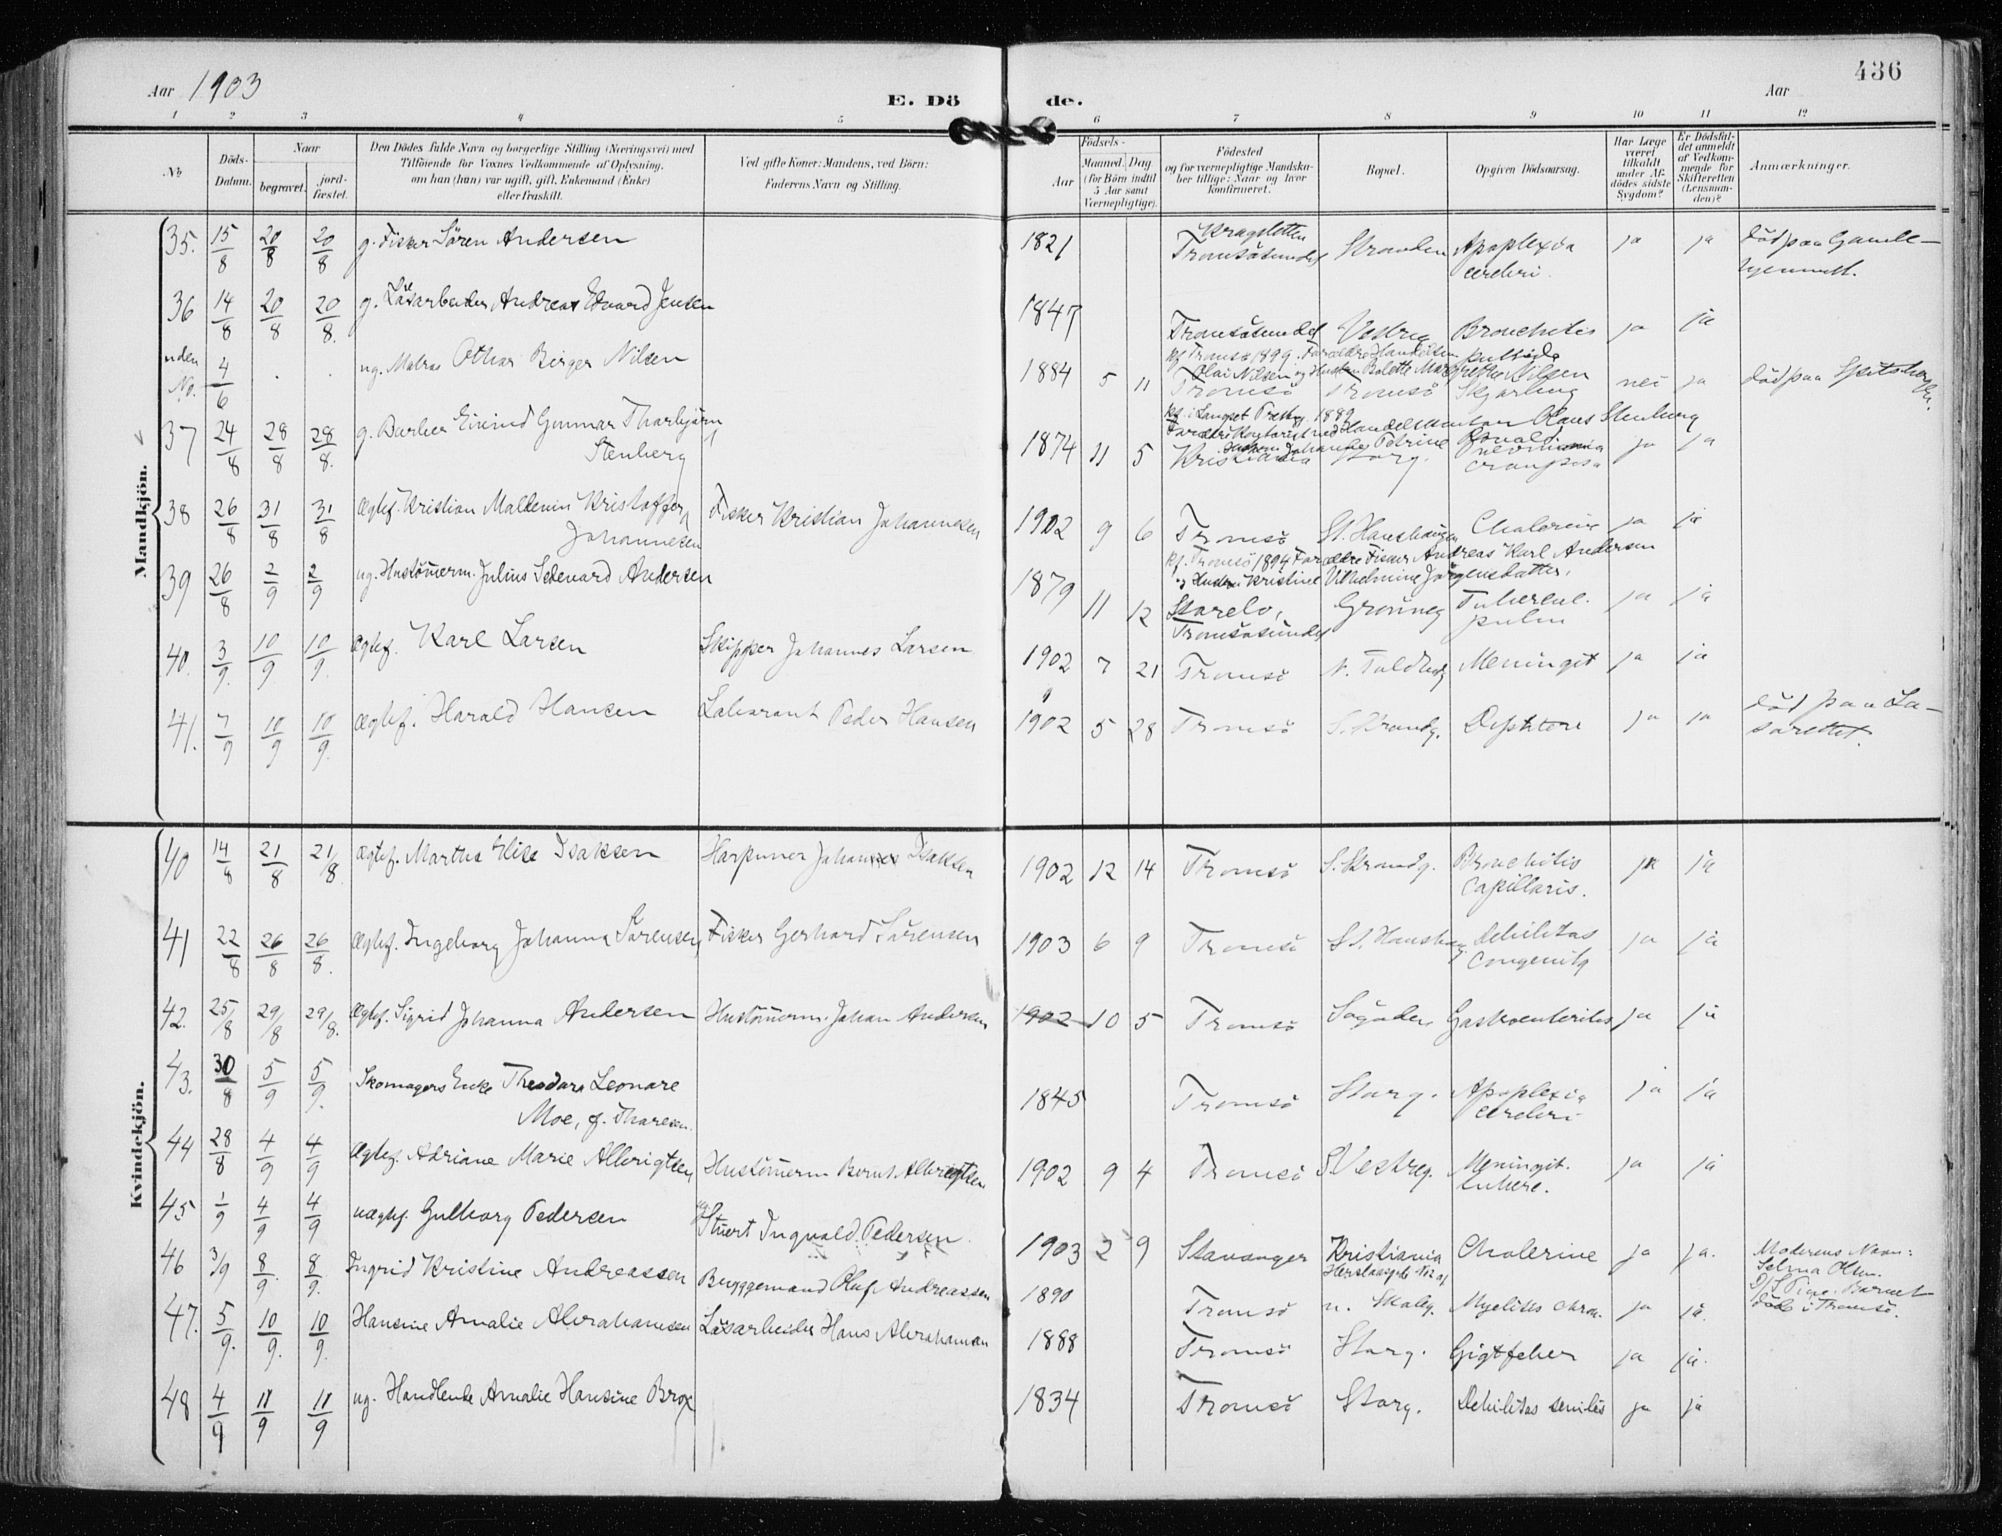 Aar 1903
E. Dö de.
Aar
436
1 2 3 4 5 6 7 8 9 10 11 12
No
Döds-Datum.
Naar
begravet.
jordfæstet.
Den Dödes fulde Navn og borgerlige Stilling (Næringsvei) med
Tilföiende for Voxnes Vedkommende af Oplysning,
om han (hun) var ugift, gift, Enkemand (Enke)
eller fraskilt.
Ved gifte Koner: Mandens, ved Börn:
Faderens Navn og Stilling.
Födsels-
Aar
Maaned. Dag
(for Börn indtil
5 Aar samt
Værnepligtige).
Födested
og for værnepligtige Mandskaber
tillige: Naar og hvor
konfirmeret.
Bopæl.
Opgiven Dödsaarsag.
Har Læge
været
tilkaldt
under Afdödes
sidste
Sygdom?
Er Dödsfaldet
anmeldt
af Vedkommende
for
Skifteretten
(Lensmanden)?
Anmærkninger.
Mandkjön.
35. 15/8 20/8 20/8 g. Fisker Sören Andersen 1821 Tromsösundet Stranden Apoplexia cerebri. ja ja Död paa Gamlehjemmet.
36 14/8 20/8 20/8. g. Lösarbeider Andreas Edvard Jensen 1847 Tromsösundet Vestreg Bronchitis ja ja
uden No. 4/6 ug. Matros Othar Birger Nilsen 1884 5 11 Tromsö Tromsö Skjörbug nei ja Död paa Spitsbergen.
kf Tromsö 1899. Forældre Handelsm
Olai Nilsen og Hustru Bolette Margrethe Nilsen
37 24/8 28/8 28/8. g. Barber Eivind Gunnar Thorbjörn Stenberg 1874 11 5 Kristiania Storg. Pneumonia crouposa ja ja
38 26/8 31/8 31/8 Ægtef. Kristian Maldenin Kristoffer Johannesen Fisker Kristian Johannesen 1902 9 6 Tromsö St. Hanshaugen Cholerine ja ja
kf. Tromsö 1894 Forældre Fisker Andreas Karl Andersen
og Hustru Kristine Vilhelmine Jörgensdatter.
39 26/8 2/9 2/9 ug. Hustömerm. Julius Edevard Andersen 1879 11 12 Tromsösundet Grönneg Tubercul. pulm ja ja
40. 3/9. 10/9 10/9. Ægtef. Karl Larsen Skipper Johannes Larsen 1902 7 21 Tromsö N. Toldbodg Meningit ja ja
41. 7/9 10/9 10/9. Ægtef. Harald Hansen Laborant Peder Hansen 1902 5 28 Tromsö S. Strandg. Difteri ja ja Död paa Lasarettet.
Kvindekjön.
40 14/8 21/8 21/8. Ægtef. Martha Elise Isaksen Harpuner Johannes Isaksen 1902 12 14 Tromsö S. Strandg. Bronchitis Capillaris. ja ja
41 22/8 26/8 26/8. Ægtef. Ingeborg Johanna Sörensen Fisker Gerhard Sörensen 1903 6 9 Tromsö St. Hanshaug Debilitas congenita ja ja
42. 25/8 29/8 29/8. Ægtef. Sigrid Johanna Andersen Hustömerm. Johan Andersen 1902 10 5 Tromsö Gastroenterites ja ja
43. 30/8 5/9 5/9. Skomagers Enke Theodora Leonare Moe, f. Thoresen. 1845 Tromsö Storg. Apoplexia cerebri ja ja
44 28/8 4/9 4/9 Ægtef. Adriane Marie Albrigtsen Hustömerm Bernt Albrigtsen 1902 9 4 Tromsö S Vestreg. Meningit. tuberc. ja ja
45 1/9 4/9 4/9 uægtef. Gulborg Pedersen Stuert Ingvald Pedersen 1903 2 9 Stavanger Kristiania Cholerine ja ja. Moderens Navn: Selma Olsen. Barnet döde i Tromsö.
46 3/9 8/9. 8/9. Ingrid Kristine Andreassen Bryggemand Oluf Andreassen 1890 Tromsö n. Skoleg. Myelites chron. ja ja.
47. 5/9. 10/9. 10/9. Hansine Amalie Abrahamsen Lösarbeider Hans Abrahamsen 1888 Tromsö Storg. Gigtfeber ja ja.
48 4/9 11/9 11/9 ug. Handlende Amalie Hansine Brox 1834 Tromsö Storg. Debilitas senilis ja ja